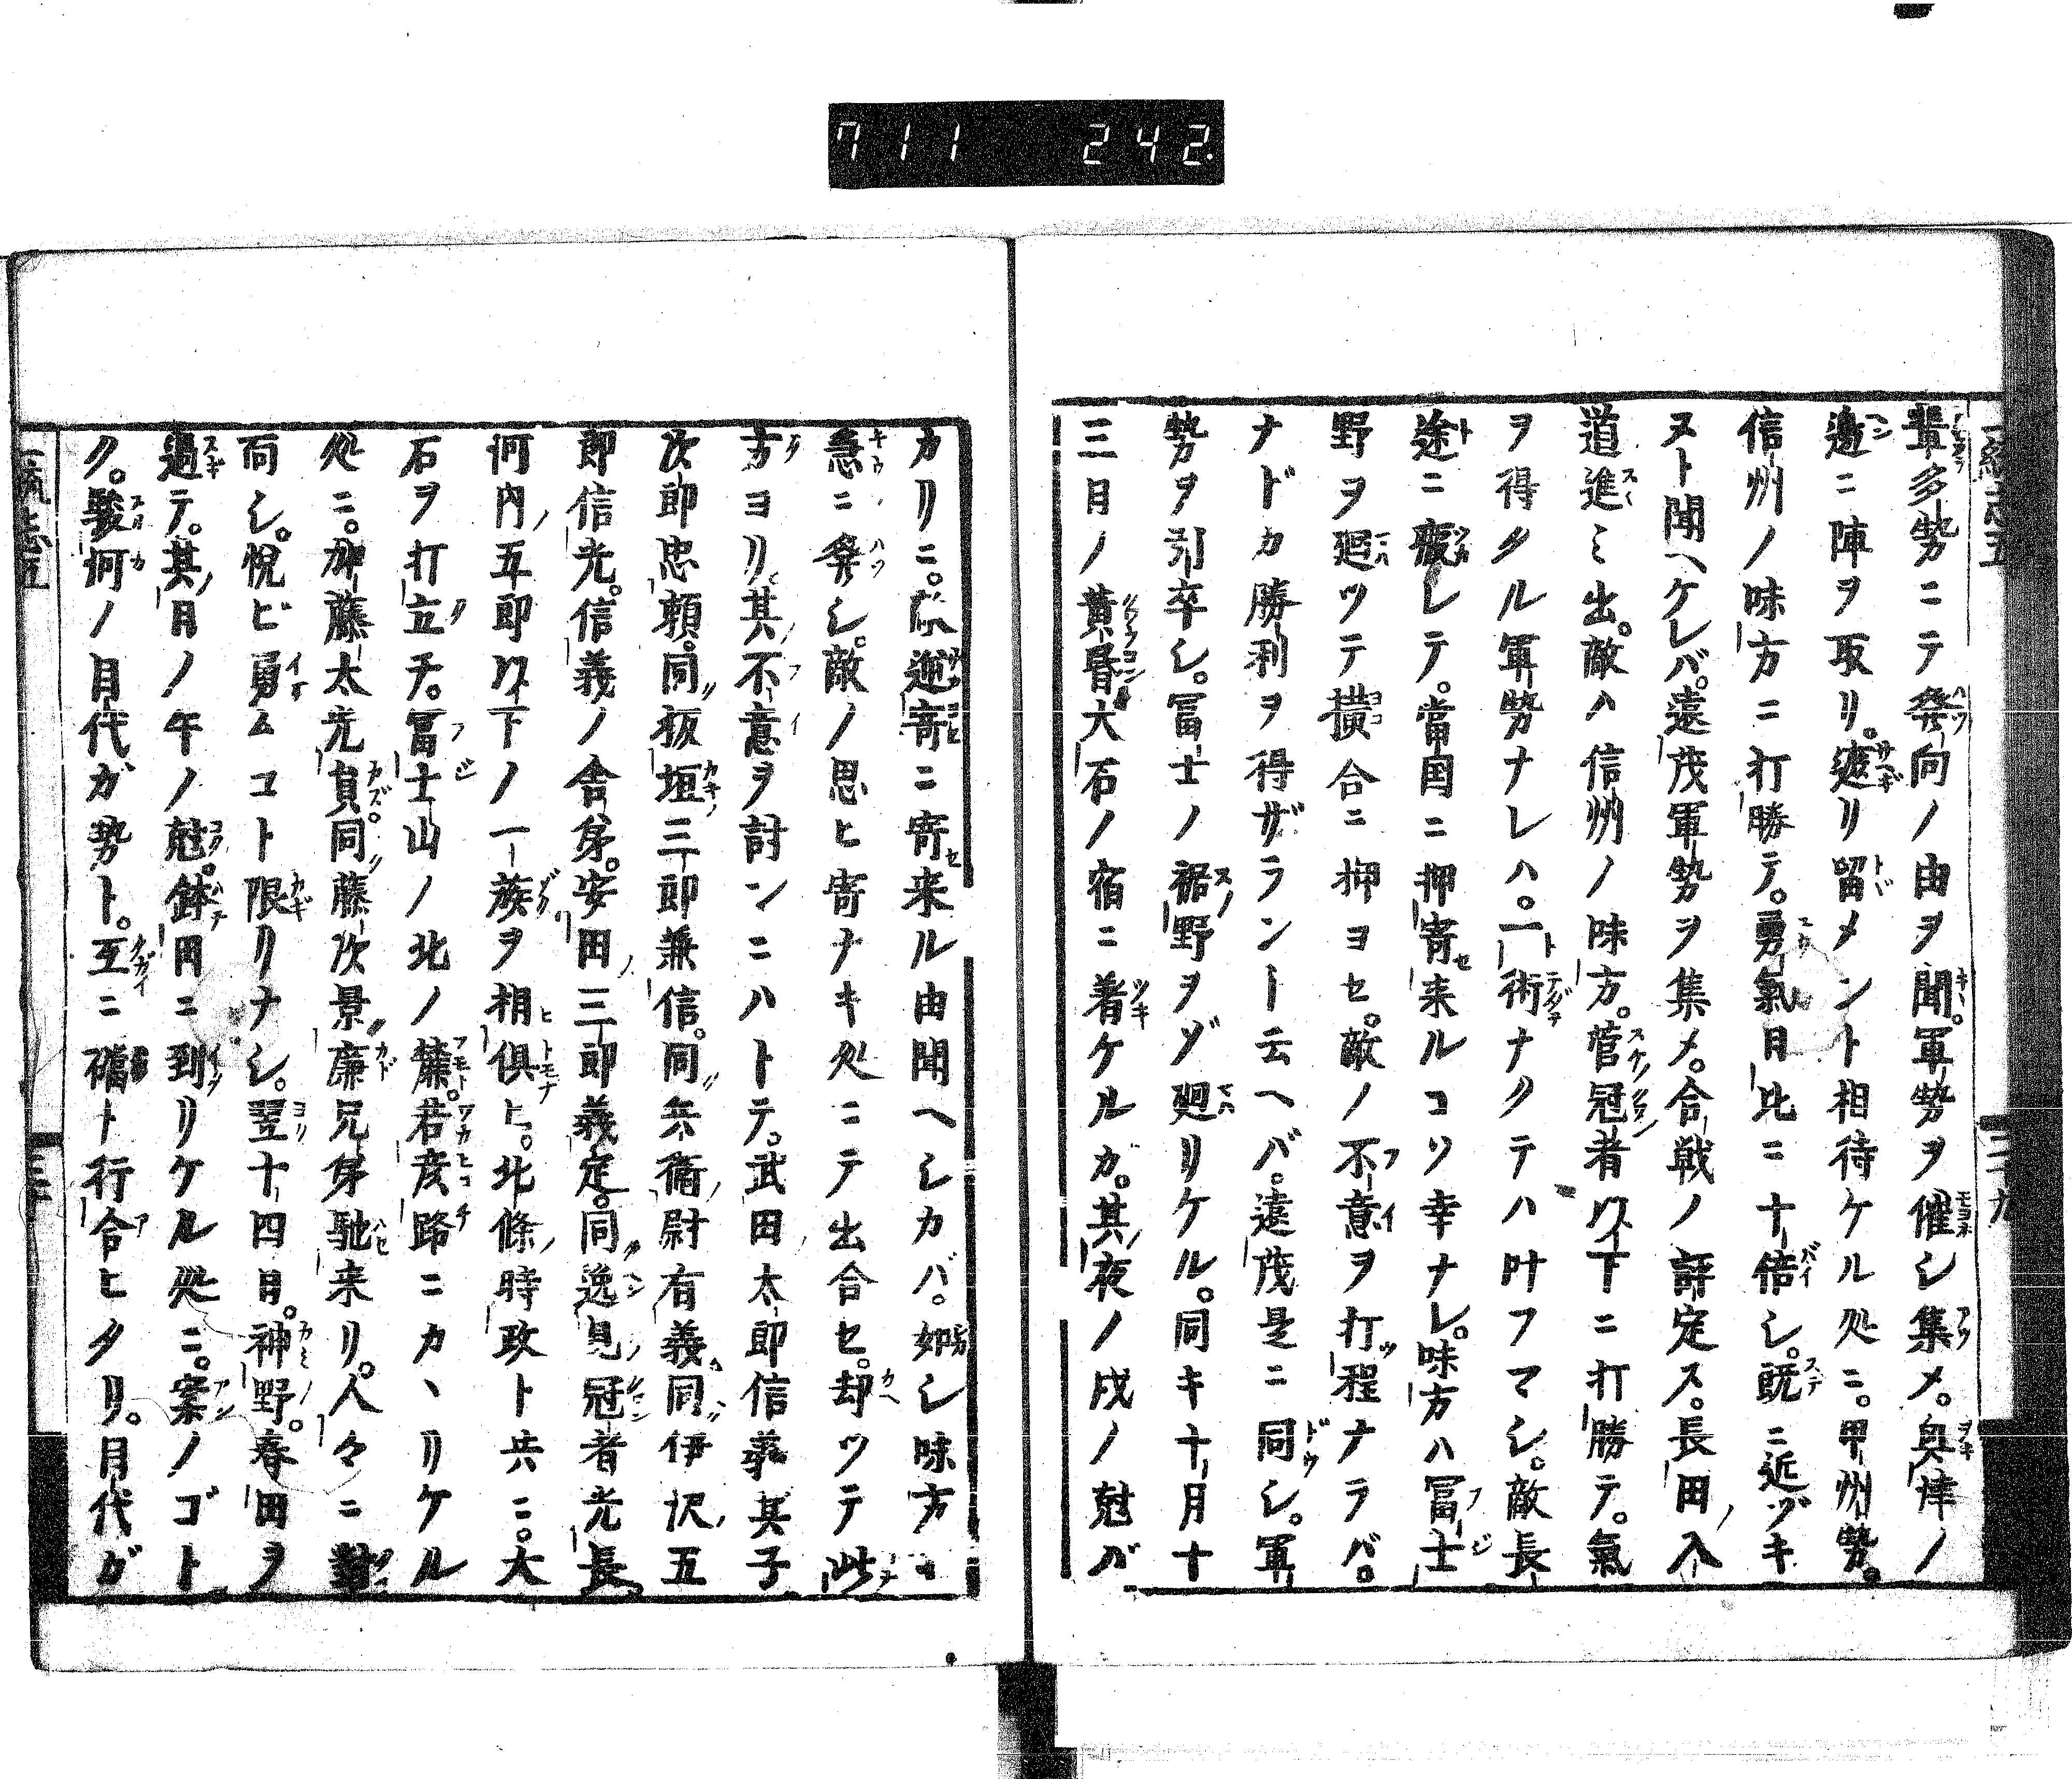 711 242.
輩多勢ニテ発向ノ由ヲ聞。軍勢ヲ催シ集メ。奥津ノ
邉ニ陣ヲ取リ。遮リ留メント相待ケル処ニ。甲州勢。
信州ノ味方ニ打勝テ。勇氣日比ニ十倍シ。既ニ近ヅキ
ヌト聞ヘケレバ。遠茂軍勢ヲ集メ。合戦ノ評定ス。長田入
道進ミ出。敵ハ信州ノ味方。菅冠者以下ニ打勝テ。氣
ヲ得タル軍勢ナレハ。一ト術ナクテハ叶フマシ。敵長
途ニ疲レテ。當国ニ押寄来ルコソ幸ナレ。味方ハ冨士
野ヲ廻ツテ横合ニ押ヨセ。敵ノ不意ヲ打程ナラバ。
ナドカ勝利ヲ得ザラント云ヘバ。遠茂是ニ同シ。軍
勢ヲ引卒シ。冨士ノ裾野ヲゾ廻リケル。同キ十月十
三日ノ黄昏大石ノ宿ニ着ケルガ。其夜ノ戌ノ尅バ
カリニ。敵逆寄ニ寄来ル由聞ヘシカバ。如シ味方ヨリ
急ニ発シ。敵ノ思ヒ寄ナキ処ニテ出合セ。却ツテ此
方ヨリ。其不意ヲ討ンニハトテ。武田太郎信義其子
次郎忠頼。同板垣三郎兼信。同兵衛尉有義。同伊沢五
郎信光。信義ノ舎弟。安田三郎義定。同逸見冠者光長。
河内五郎以下ノ一族ヲ相倶ヒ。北條時政ト共ニ。大
石ヲ打立チ。冨士山ノ北ノ麓。若彦路ニカヽリケル
処ニ。加藤太光員。同藤次景廉兄弟馳来リ。人々ニ對
面シ。悦ビ勇ムコト限リナシ。翌十四日。神野。春田ヲ
過テ。其日ノ午ノ尅。鉢田ニ到リケル処ニ。案ノゴト
ク。駿河ノ目代ガ勢ト。互ニ礑ト行合ヒタリ。目代ガ